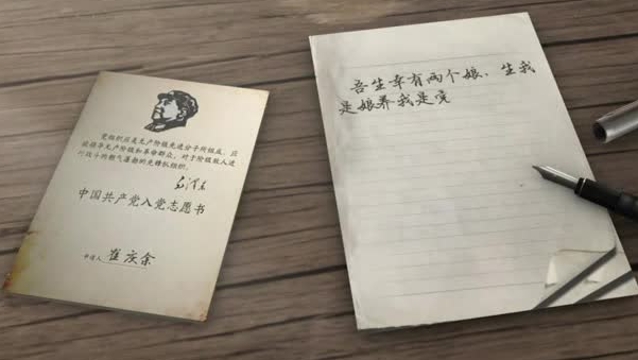 党组织应是无产阶级先进分子所组成，应
能领导无产阶级和革命群众，对于阶级敌人进
行战斗的朝气蓬勃的先锋队组织。
毛泽东
中国共产党入党志愿书
申请人 崔庆余
吾生幸有两个娘，生我
是娘养我是党